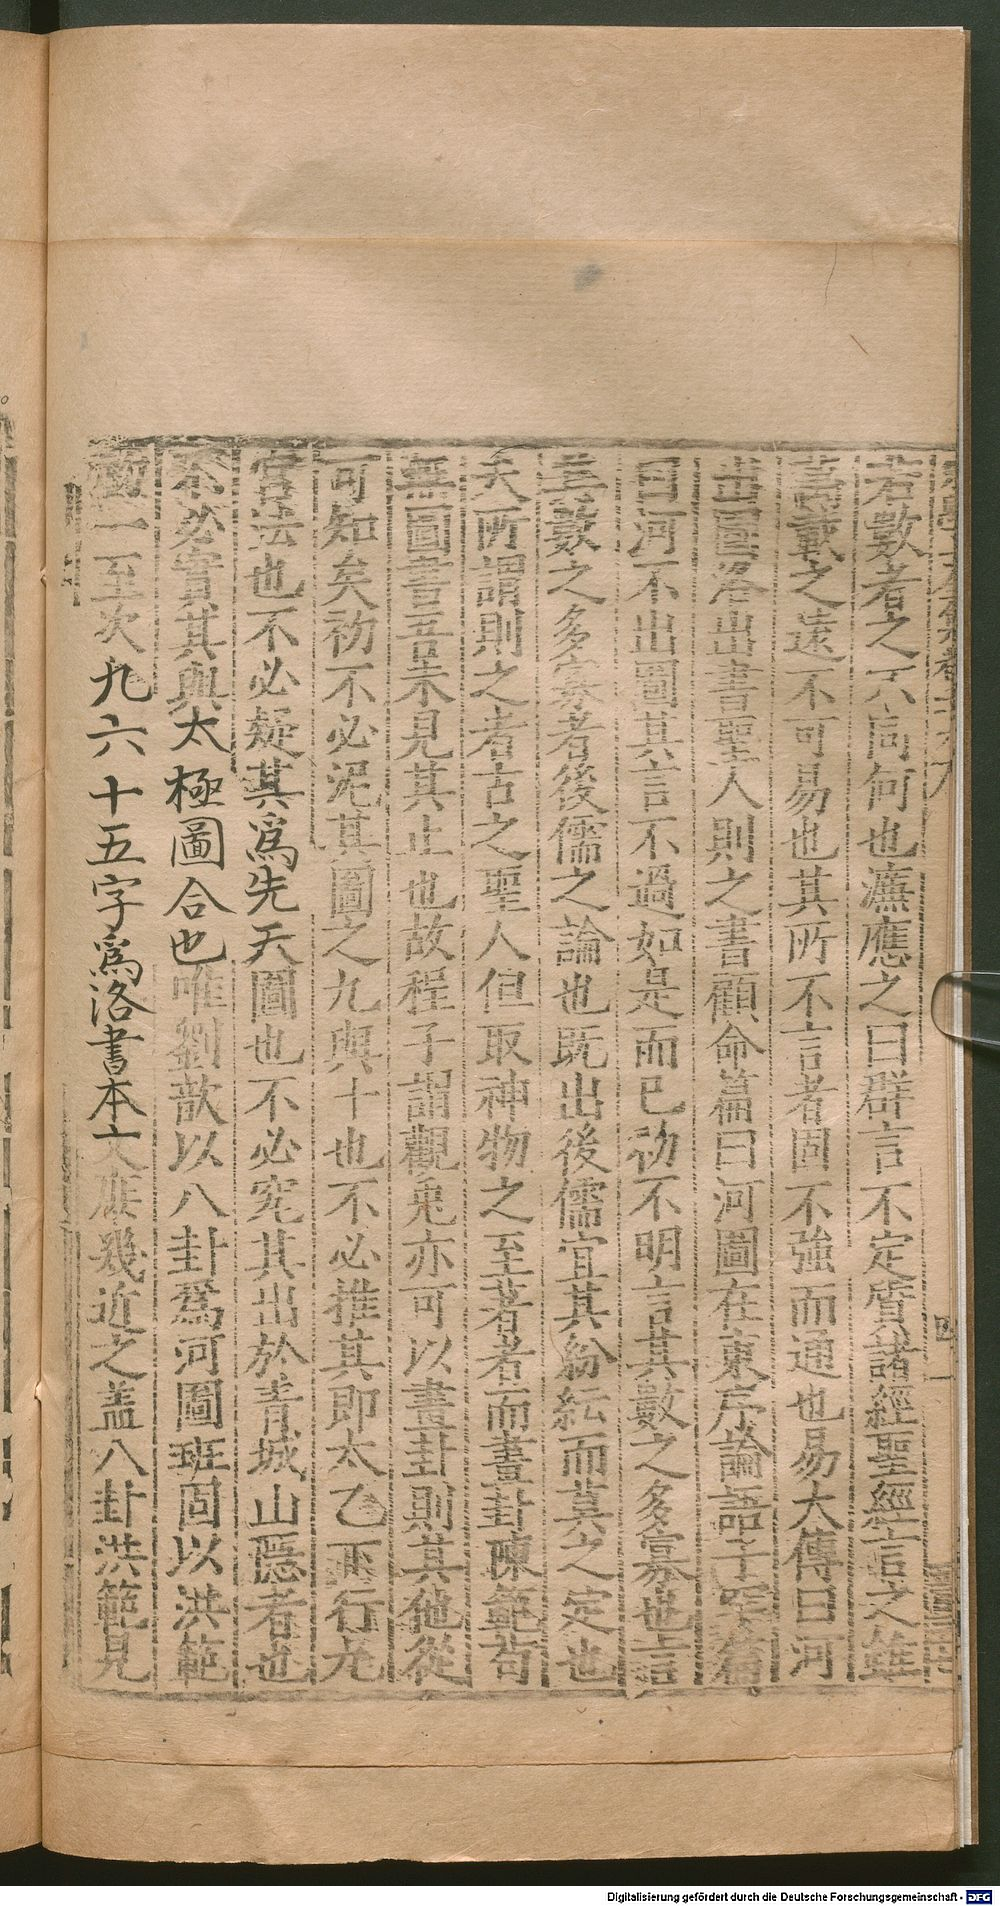 若數者之不同何也濂應之曰群言不定質諸經聖經言之雖
萬載之遠不可易也其所不言者固不強而通也易大傳曰河
出圖洛出書聖人則之書顧命篇曰河圖在東序論語子罕篇
曰河不出圖其言不過如是而已初不明言其數之多寡也言
其數之多寡者後儒之論也既出後儒宜其紛紜而莫之定也
夫所謂則之者古之聖人但取神物之至著者而畫卦陳範苟
無圖書吾未見其止也故程子謂觀兔亦可以畫卦則其他從
可知矣初不必泥其圖之九與十也不必推其即太乙下行九
宮法也不必疑其爲先天圖也不必究其出於青城山隱者也
不必實其與太極圖合也唯劉歆以八卦爲河圖班固以洪範
初一至次九六十五字爲洛書本文庶幾近之盖八卦洪範見
Digitalisierung gefördert durch die Deutsche Forschungsgemeinschaft - DFG